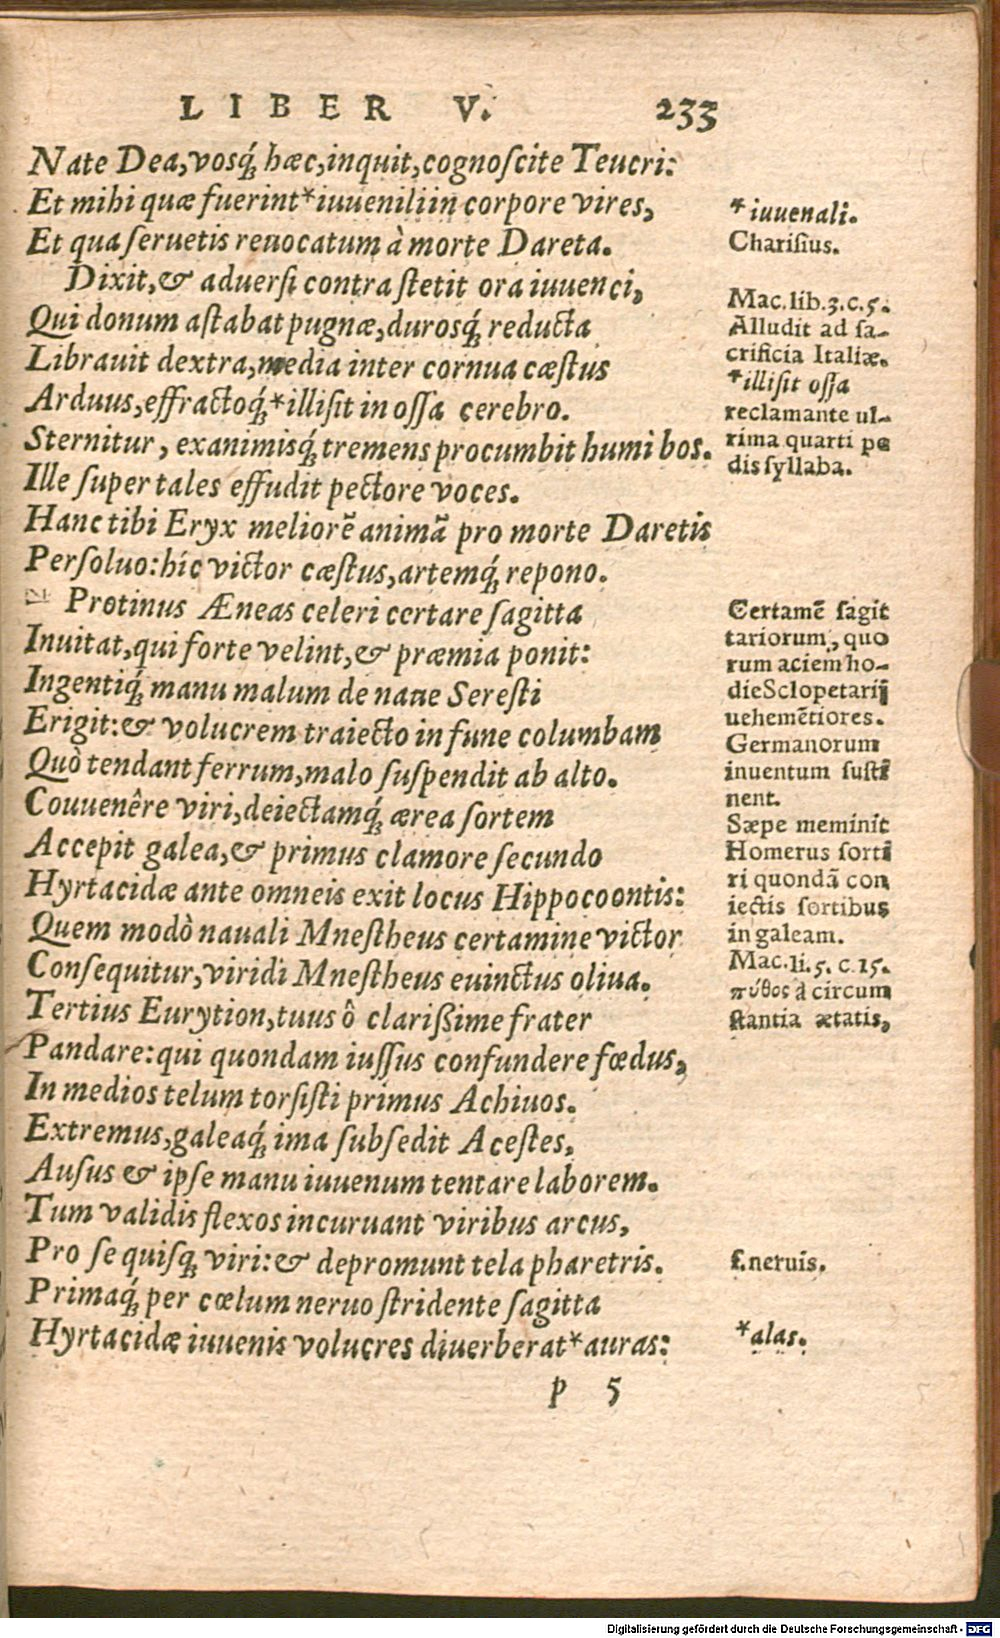 LIBER V. 233
Nate Dea, vosq́; hæc, inquit, cognoſcite Teucri:
Et mihi quæ fuerint * iuueniliin corpore vires,
Et qua ſeruetis reuocatum à morte Dareta.
Dixit, & aduerſi contra ſtetit ora iuuenci,
Qui donum aſtabat pugnæ, durosq́; reducta
Librauit dextra, media inter cornua cæſtus
Arduus, effractoq́; * illiſit in oſſa cerebro.
Sternitur, exanimisq́; tremens procumbit humi bos.
Ille ſuper tales effudit pectore voces.
Hanc tibi Eryx meliorē animā pro morte Daretis
Perſoluo: hic victor cæſtus, artemq́; repono.
Protinus Æneas celeri certare ſagitta
Inuitat, qui forte velint, & præmia ponit:
Ingentiq́; manu malum de naue Sereſti
Erigit: & volucrem traiecto in fune columbam
Quò tendant ferrum, malo ſuſpendit ab alto.
Couuenêre viri, deiectamq́; ærea ſortem
Accepit galea, & primus clamore ſecundo
Hyrtacidæ ante omneis exit locus Hippocoontis:
Quem modò nauali Mneſtheus certamine victor
Conſequitur, viridi Mneſtheus euinctus oliua.
Tertius Eurytion, tuus ô clarißime frater
Pandare: qui quondam iuſſus confundere fœdus,
In medios telum torſiſti primus Achiuos.
Extremus, galeaq́; ima ſubſedit Aceſtes,
Auſus & ipſe manu iuuenum tentare laborem.
Tum validis flexos incuruant viribus arcus,
Pro ſe quiſq; viri: & depromunt tela pharetris.
Primaq́; per cœlum neruo ſtridente ſagitta
Hyrtacidæ iuuenis volucres diuerberat * auras:
p 5
* iuuenali.
Chariſius.
Mac. lib. 3. c. 5.
Alludit ad ſa-
crificia Italiæ.
* illiſit oſſa
reclamante ul-
tima quarti pe
dis ſyllaba.
Certamē ſagit
tariorum, quo
rum aciem ho-
die Sclopetarij
uehemētiores.
Germanorum
inuentum ſuſti
nent.
Sæpe meminit
Homerus ſorti
ri quondā con
iectis ſortibus
in galeam.
Mac. li. 5. c. 15.
πύθος à circum
ſtantia ætatis,
ſ. neruis.
* alas.
Digitalisierung gefördert durch die Deutsche Forschungsgemeinschaft - DFG